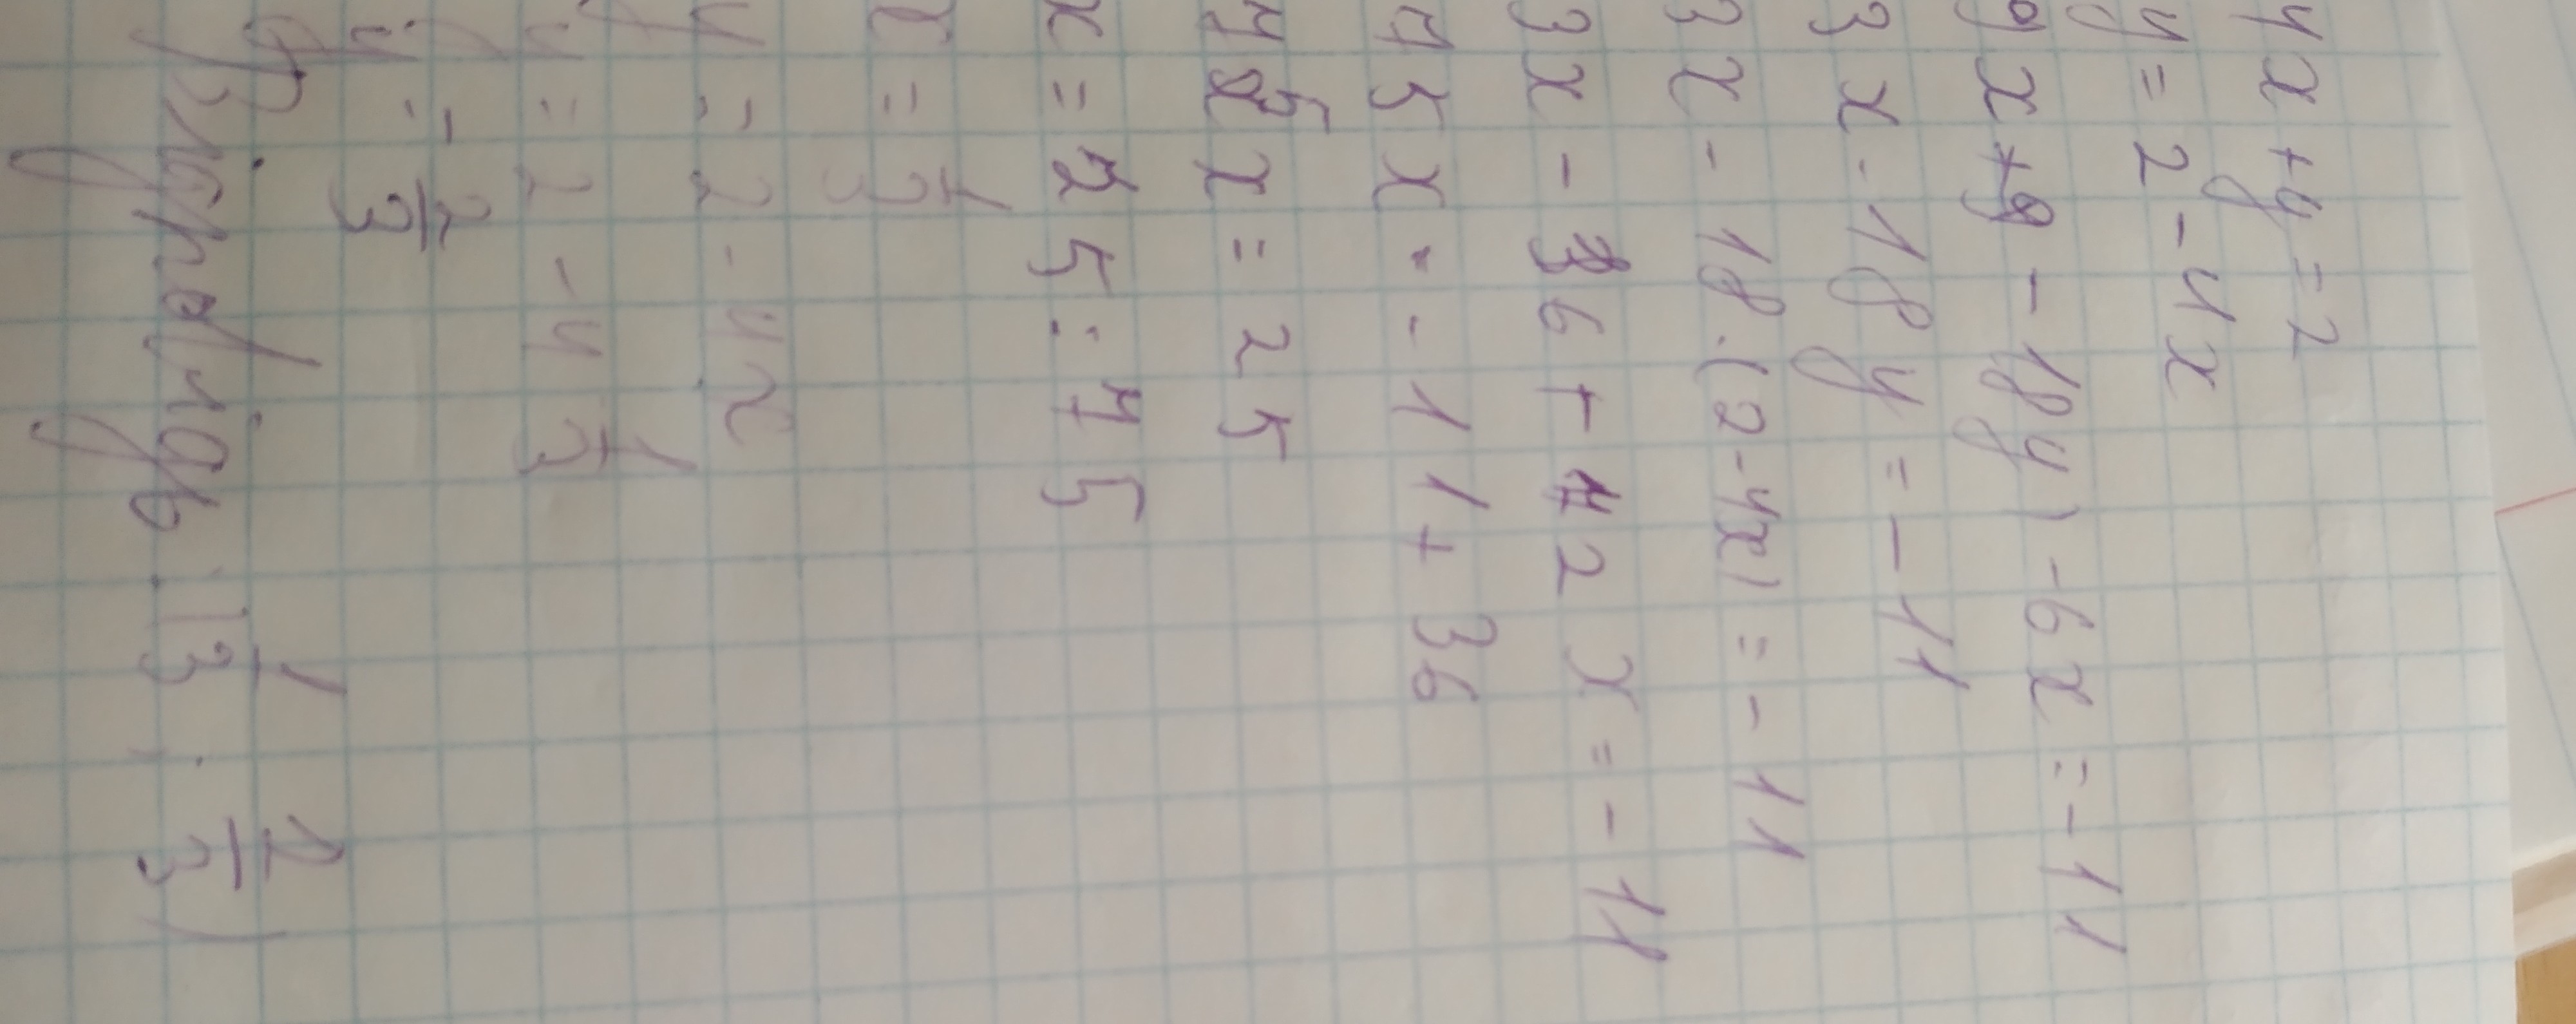 4x + y = 2
y = 2 - 4x
9x + 9 - 18y) - 6x = -11
3x - 18y = -11
3x - 18·(2-4x) = -11
3x - 36 + 42x = -11
75x = -11 + 36
75x = 25
x = 25:75
x = 1/3
y = 2 - 4x
y = 2 - 4 1/3
y = 2/3
Відповідь: (1/3; 2/3)